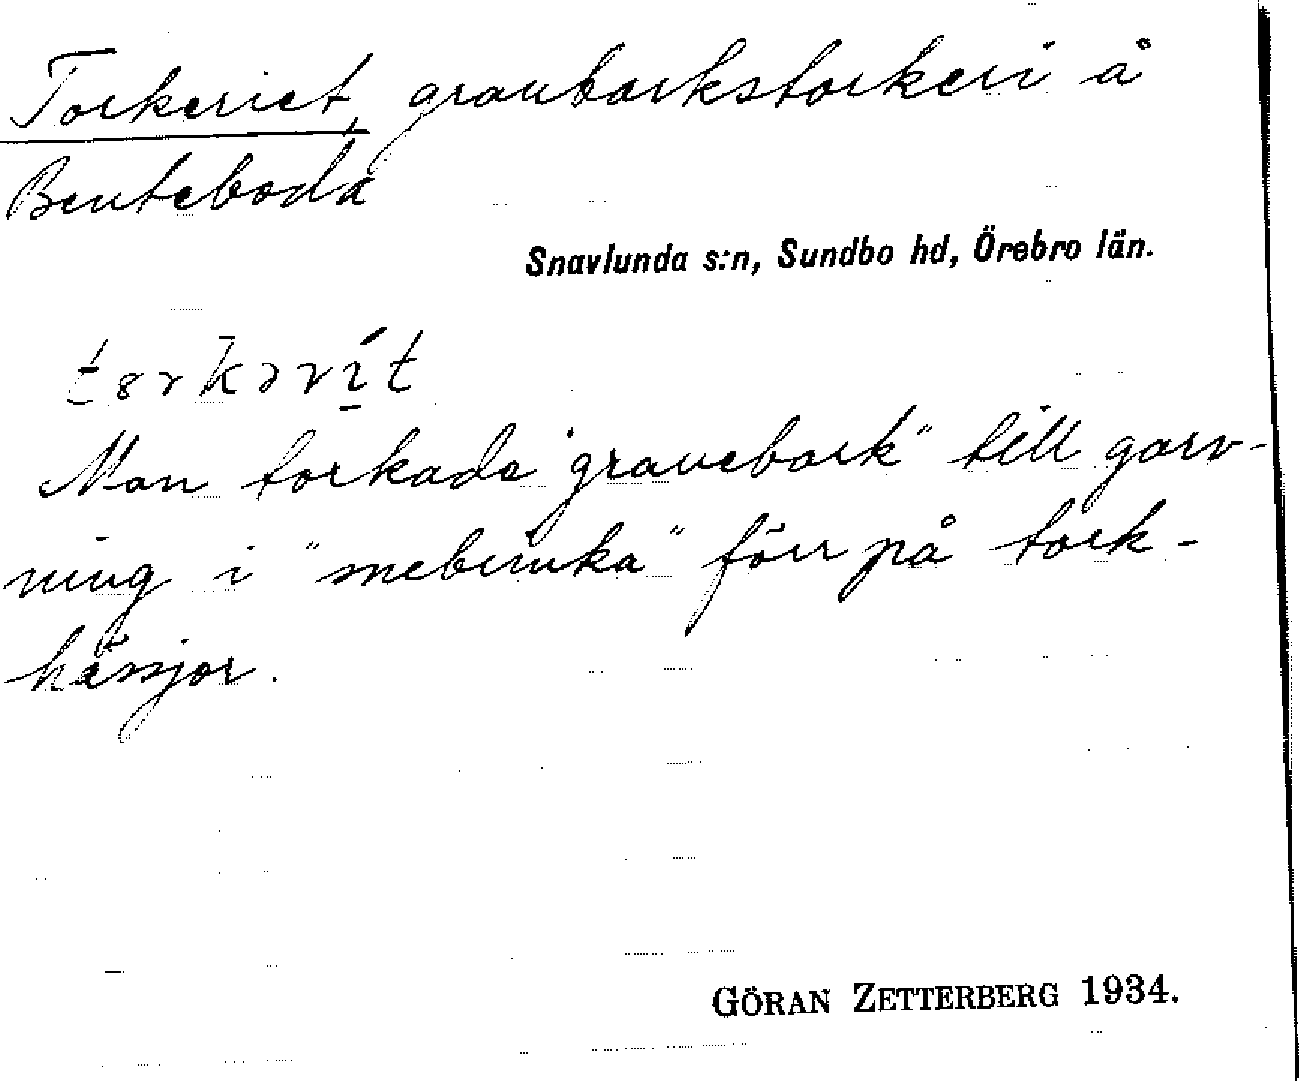 Torkeriet, granbarkstorkeri å
Benteboda
Snavlunda s:n, Sundbo hd, Örebro län.
Man torkade "granebark" till garv-
ning i " " förr på tork-
hässjor.
GÖRAN ZETTERBERG 1934.